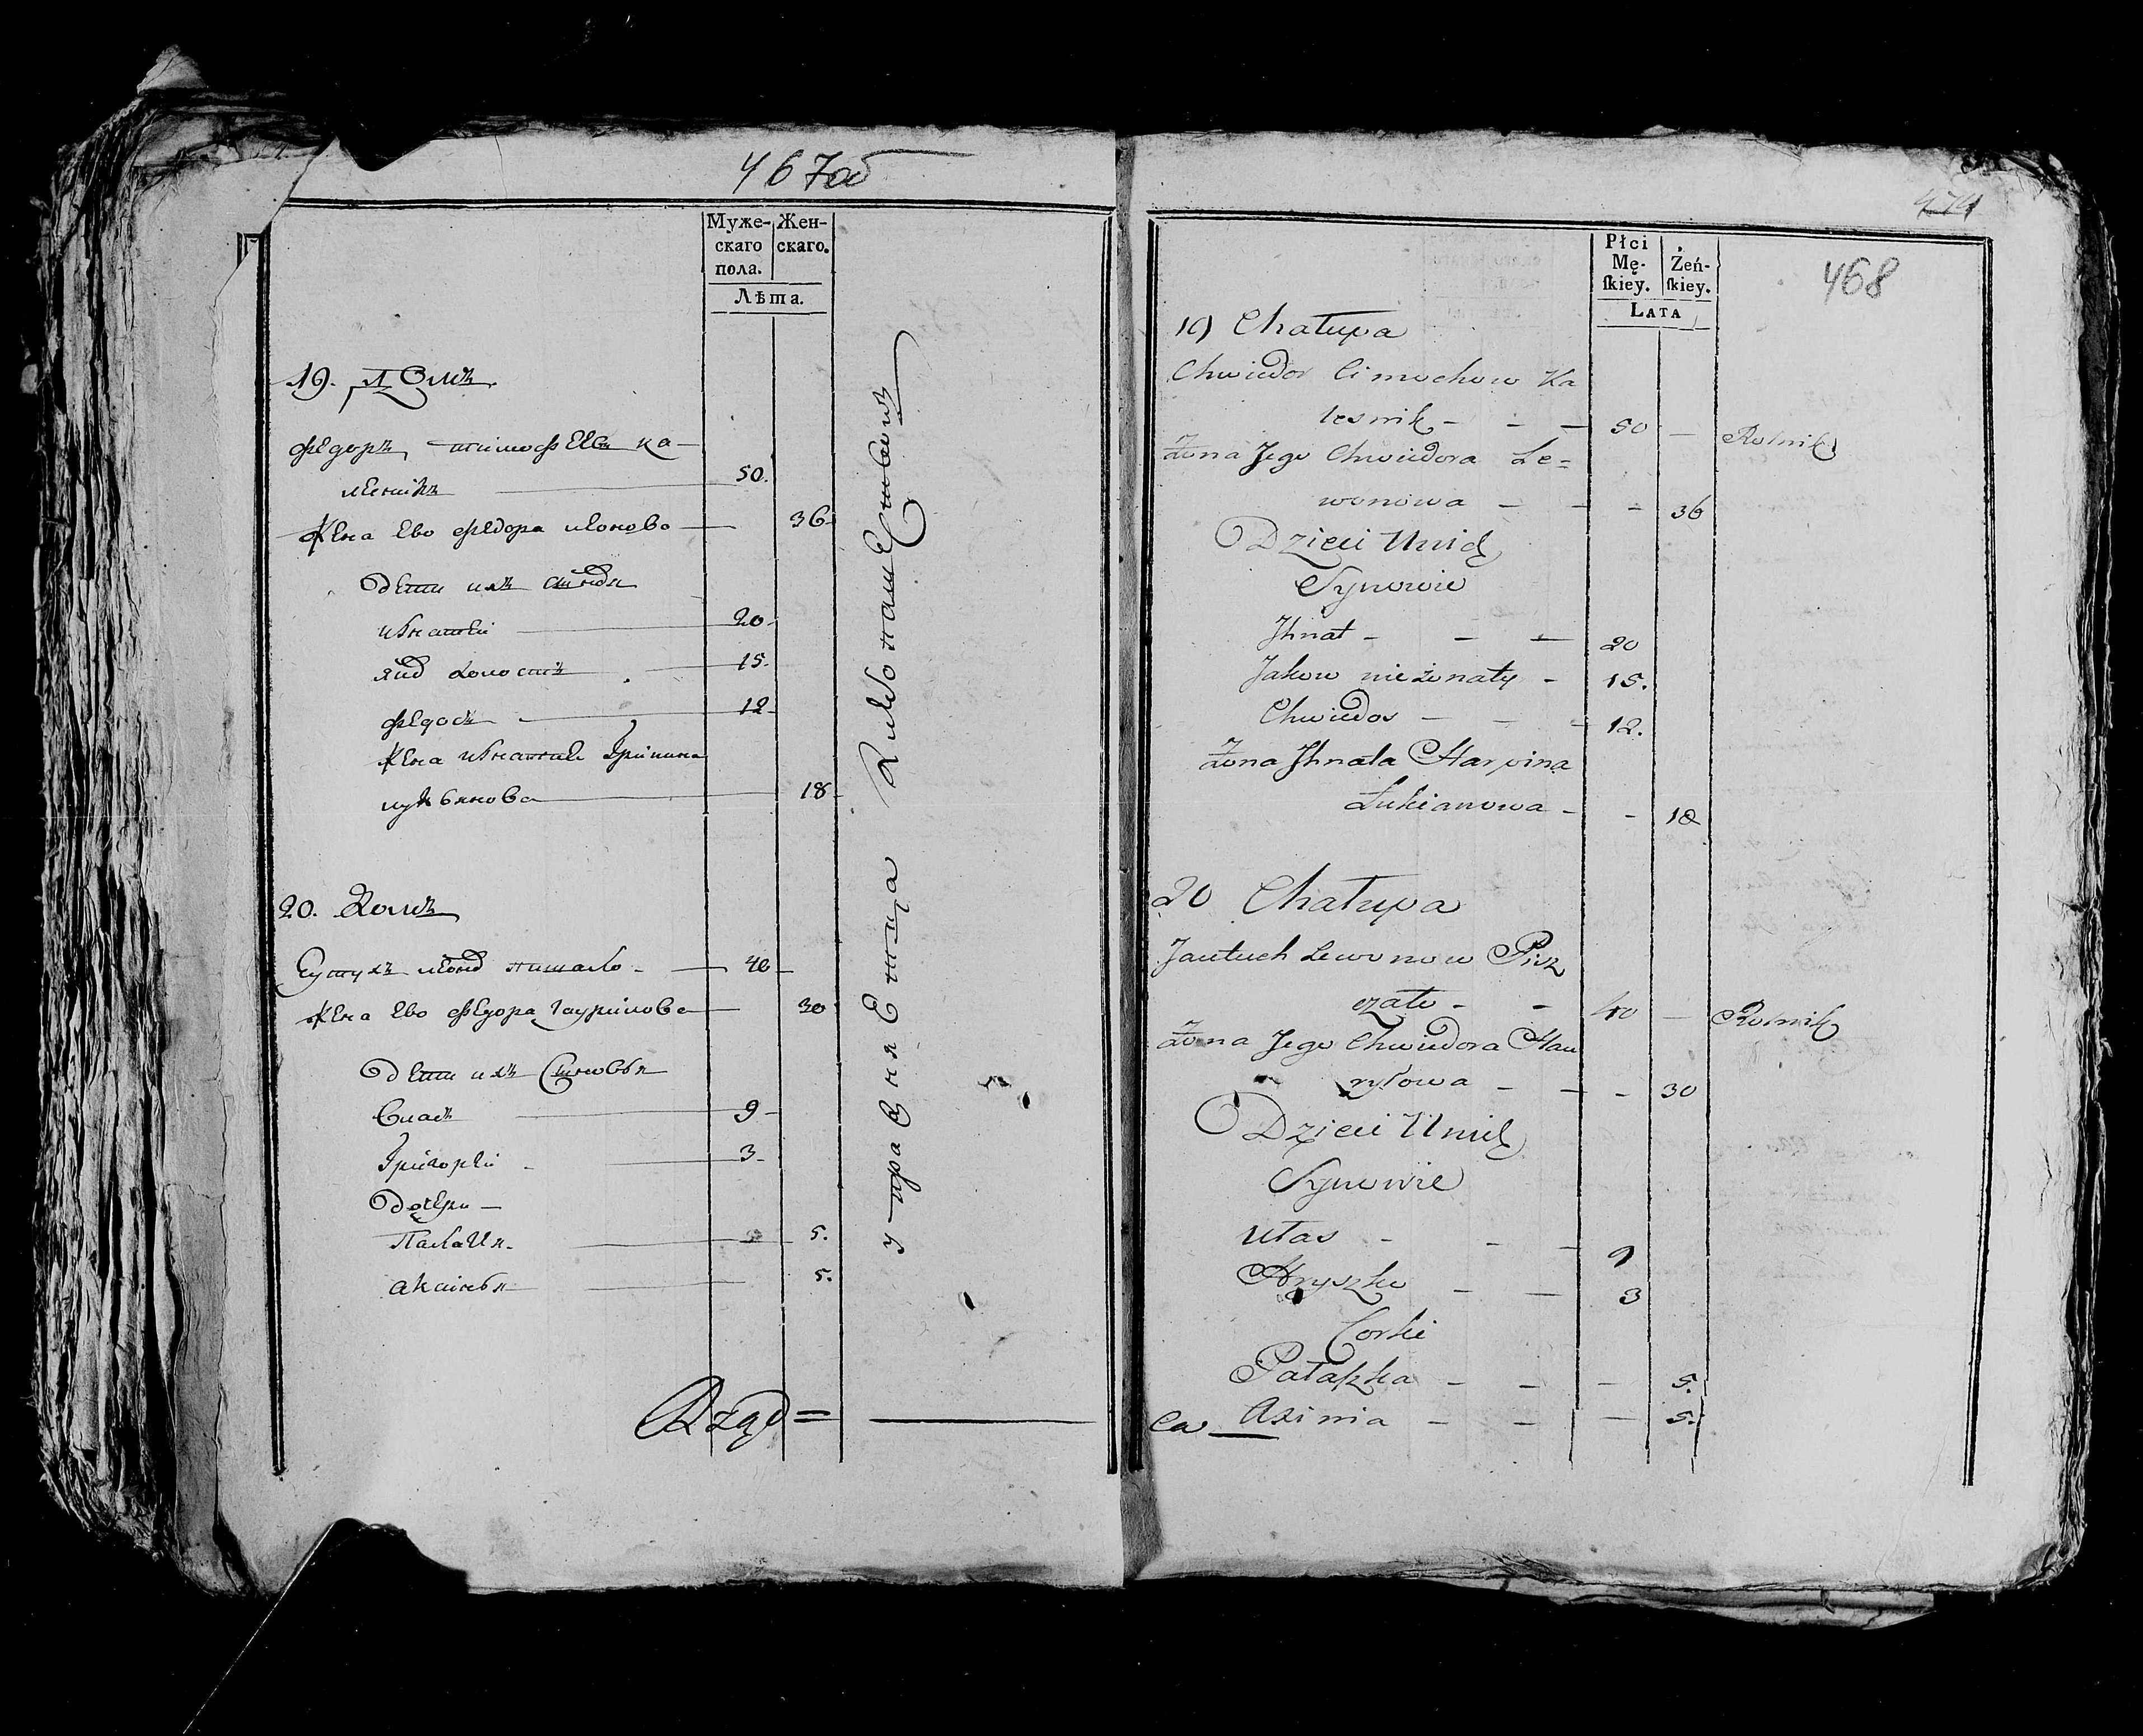 467об
Муже-
скаго
пола.
Жен-
скаго.
Лѣта.
19. Домъ
Федоръ тимофеевъ ка-
лесникъ 50.
Жена ево Федора леоновa 36
Дети ихъ
игнатей 20
15.
Федосъ 12
Жена игнатия
лукьянова 18
20. Домъ
Еутухъ 40
Жена ево Федора гаурилова 30
Дети ихъ Сыновья
9
Григорей 3
Дочери
Палагия 5.
аксинья 5.
Rząd =
468
Płci
Mę-
ſkiey.
Żeń-
ſkiey.
LATA
19 Chałupa
Chwiedor Cimochow Ka
lesnik - - - 50 - Rolnik
Żona Jego Chwiedora Le=
wonowa - - - 36
Dzieci Unich
Synowie
Jhnat - - - 20
Jakow nieżonaty - 15.
Chwiedos - - - 12.
Żona Jhnata Harpina
Lukianowa - - 18
20 Chałupa
Jautuch Lewonow Pisz
czało - - 40 - Rolnik
Żona Jego Chwiedora Hau
ryłowa - - - 30
Dzieci Unich
Synowie
Ułas - - - 9
Hryszko - - 3
Corki
Pałaszka - - - 5.
Axinia - - - 5.